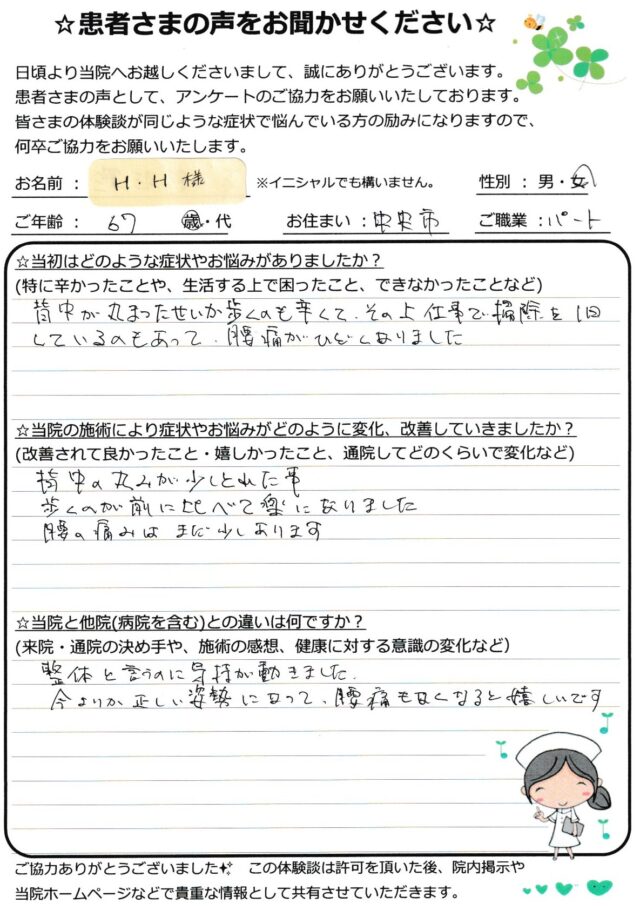 ☆患者さまの声をお聞かせください☆
日頃より当院へお越しくださいまして、誠にありがとうございます。
患者さまの声として、アンケートのご協力をお願いいたしております。
皆さまの体験談が同じような症状で悩んでいる方の励みになりますので、
何卒ご協力をお願いいたします。
お名前： H・H 様 ※イニシャルでも構いません。 性別：男・女
ご年齢： 67 歳・代 お住まい：中央市 ご職業：パート
☆当初はどのような症状やお悩みがありましたか？
(特に辛かったことや、生活する上で困ったこと、できなかったことなど)
背中が丸まったせいか歩くのも辛くて、その上仕事で掃除を1回
しているのもあって、腰痛がひどくなりました
☆当院の施術により症状やお悩みがどのように変化、改善していきましたか？
(改善されて良かったこと・嬉しかったこと、通院してどのくらいで変化など)
背中の丸みが少しとれた事
歩くのが前に比べて楽になりました
腰の痛みはまだ少しあります
☆当院と他院(病院を含む)との違いは何ですか？
(来院・通院の決め手や、施術の感想、健康に対する意識の変化など)
整体と言うのに気持が動きました。
今よりか正しい姿勢になって、腰痛もなくなると嬉しいです
ご協力ありがとうございました この体験談は許可を頂いた後、院内掲示や
当院ホームページなどで貴重な情報として共有させていただきます。